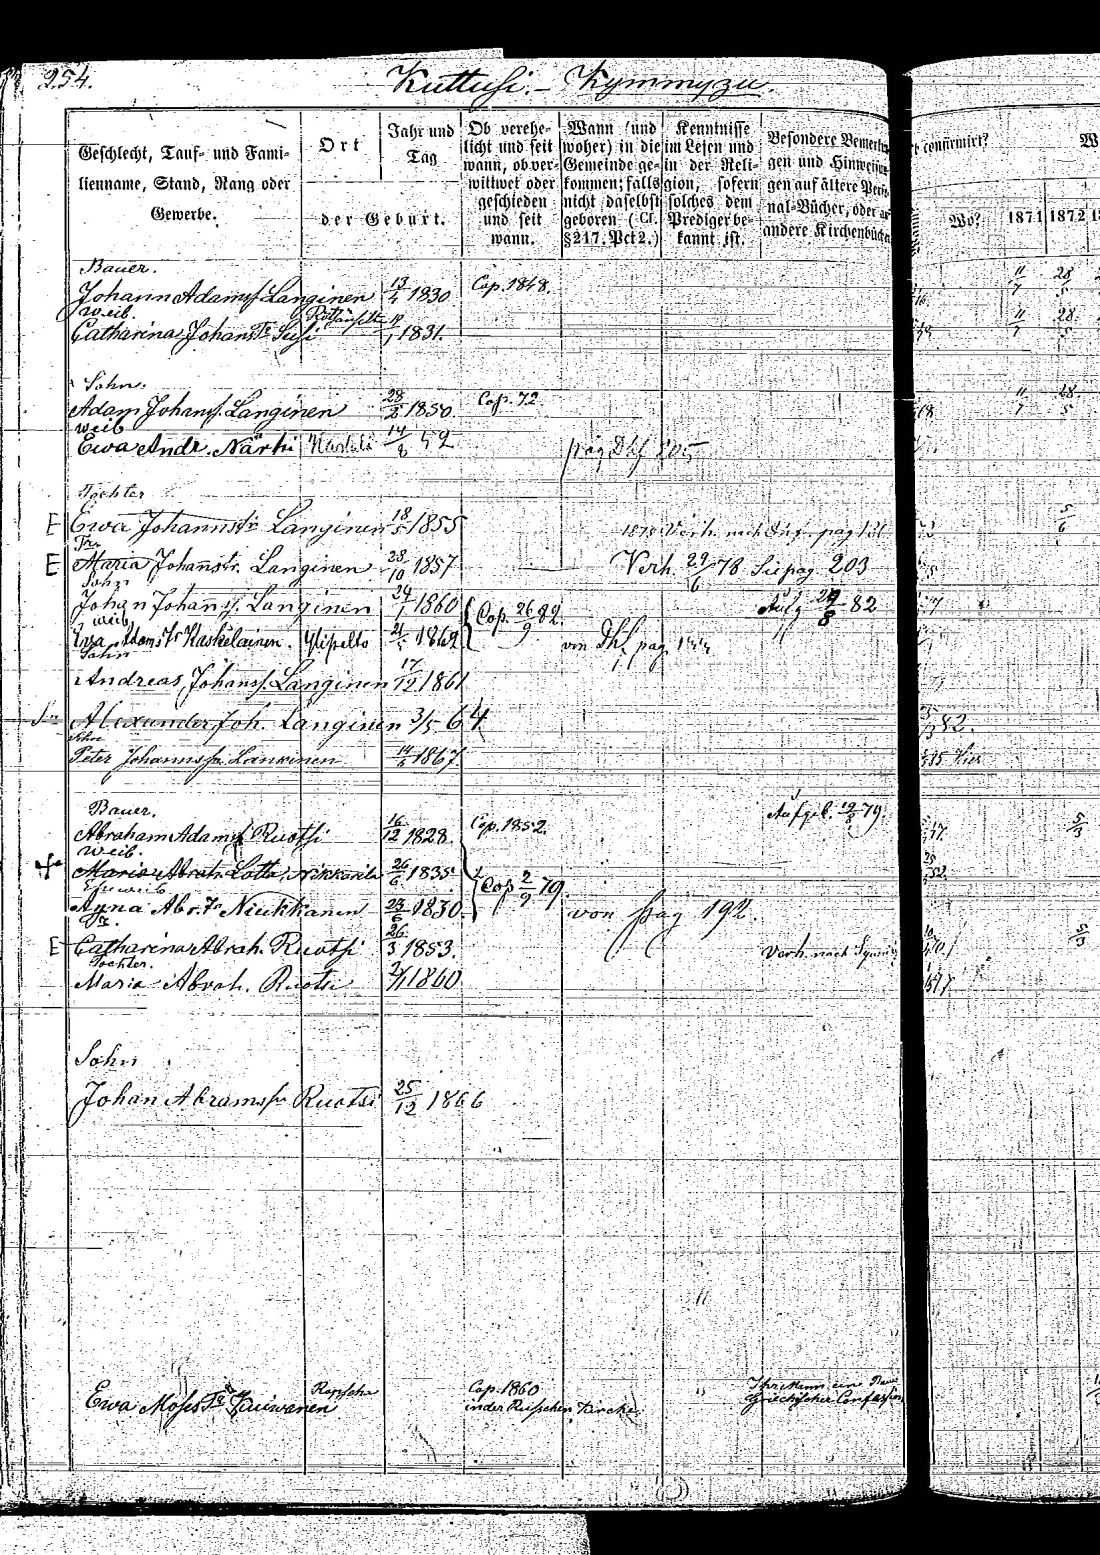 254.
Kuttusi. – Kymmyzu.
Geschlecht, Tauf- und Fami-
lienname, Stand, Rang oder
Gewerbe.
Ort
Jahr und
Tag
der Geburt.
Ob verehe-
licht und seit
wann, ob ver-
wittwet oder
geschieden
und seit
wann.
Wann (und
woher) in die
Gemeinde ge-
kommen; falls
nicht daselbst
geboren (Cf.
§ 217. Pct 2.)
Kenntnisse
im Lesen und
in der Reli-
gion, sofern
solches dem
Prediger be-
kannt ist.
Besondere Bemerkun-
gen und Hinweisun-
gen auf ältere Perso-
nal-Bücher, oder
andere Kirchenbücher
confirmirt?
Wo?
1871
1872
Bauer.
Johann Adamss. Langinen 13/4 1830 Cop. 1848. 11/7 28/5
Weib.
Catharina Johanstr. Susi 1831. 11/7 28/5
Sohn.
Adam Johanss. Langinen 28/2 1850. Cop. 72 11/7 28/5
weib
Ewa Andr. Närhi 14/8 52 pag
Tochter
E Ewa Johannstr Langinen 18/5 1855 1878 Verh. nach pag 121
Tr.
E Maria Johanstr. Langinen 28/10 1857 Verh. 29/6 78 Sie pag. 203
Sohn
Johan Johanss. Langinen 24/1 1860 Cop. 26/9 82. Aufg 29/8 82
weib
Ewa Adams Tr Kaskelainen. Ylipelto 1862 von pag.
Sohn
Andreas, Johanss. Langinen 17/12 1861
Alexander Joh. Langinen 3/5 64 82.
Sohn
Peter Johannss Lankinen 14/6 1867 Hier
Bauer.
Abraham Adamss Ruotsi 16/12 1828. Cop. 1852. Aufgeb. 79.
Weib.
Maria Abrah. Lotta, Nikkarila 26/6 1835.
Eheweib
Agna Abr. Tr Niukkanen 23/6 1830. Cop 2/9 79. von pag 192.
Tr.
E Catharina Abrah. Ruotsi 26/3 1853. Verh. nach
Tochter.
Maria Abrah. Ruotsi 2/11 1860
Sohn
Johan Abramss Ruotsi 25/12 1866
Ewa Moses Tr Jäiwänen Ropscha Cop. 1860 Ihr Mann ein
in der Russischen Kirche. Griechischer Confession